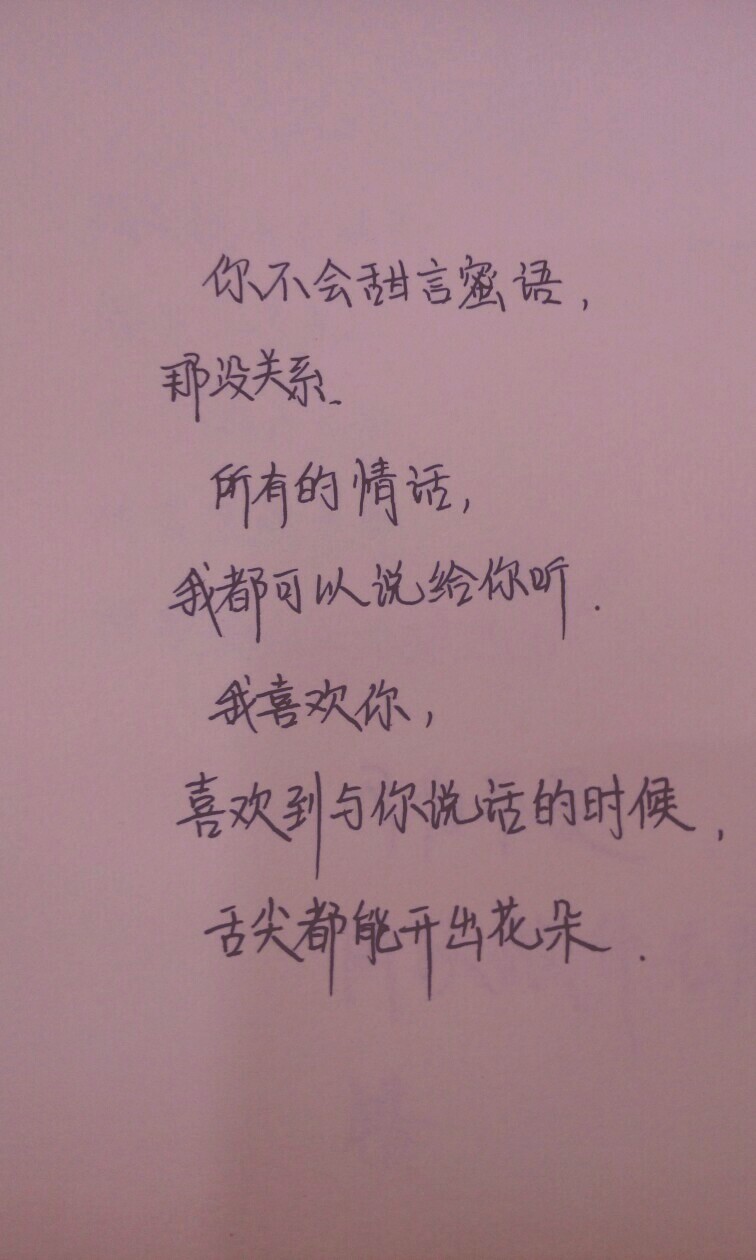 你不会甜言蜜语,
那没关系.
所有的情话,
我都可以说给你听.
我喜欢你,
喜欢到与你说话的时候,
舌尖都能开出花朵.